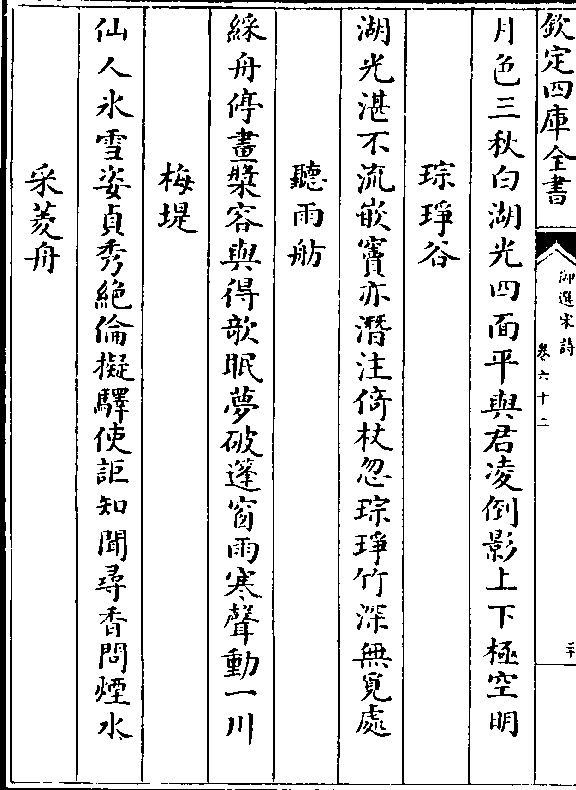 欽定四庫全書
御選宋詩
卷六十二
三十
月色三秋白湖光四面平與君凌倒影上下極空明
琮琤谷
湖光湛不流嵌竇亦潛注倚杖忽琮琤竹深無覓處
聽雨舫
綵舟停畫槳容與得欹眠夢破蓬窗雨寒聲動一川
梅堤
仙人氷雪姿貞秀絶倫擬驛使詎知聞尋香問煙水
采菱舟